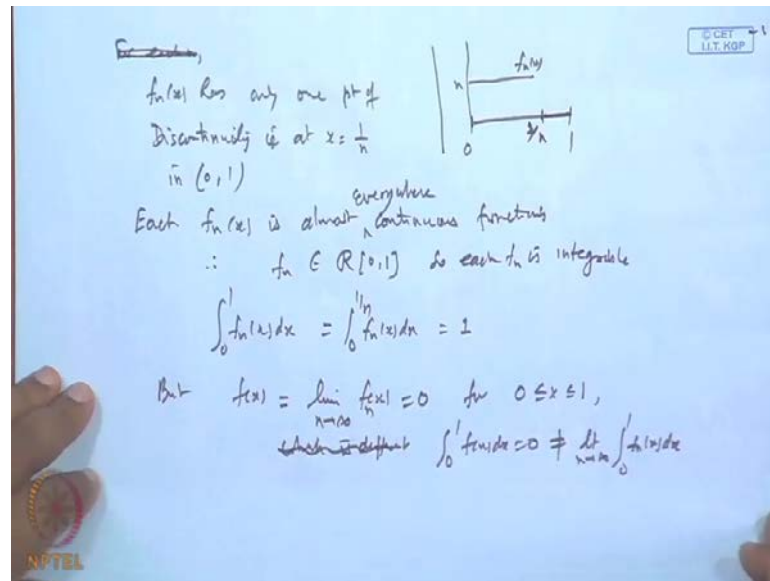 © CET
I.I.T. KGP
fn(x) has only one pt of
Discontinuity is at x = 1/n
in (0, 1)
n fn(x)
0 1/n 1
everywhere
Each fn(x) is almost ^ continuous functions
∴ fn ∈ R[0,1] So each fn is integrable
∫₀¹ fn(x)dx = ∫₀^{1/n} fn(x)dx = 1
But f(x) = lim_{n→∞} fn(x) = 0 for 0 ≤ x ≤ 1,
∫₀¹ f(x)dx = 0 ≠ lt_{n→∞} ∫₀¹ fn(x)dx
NPTEL